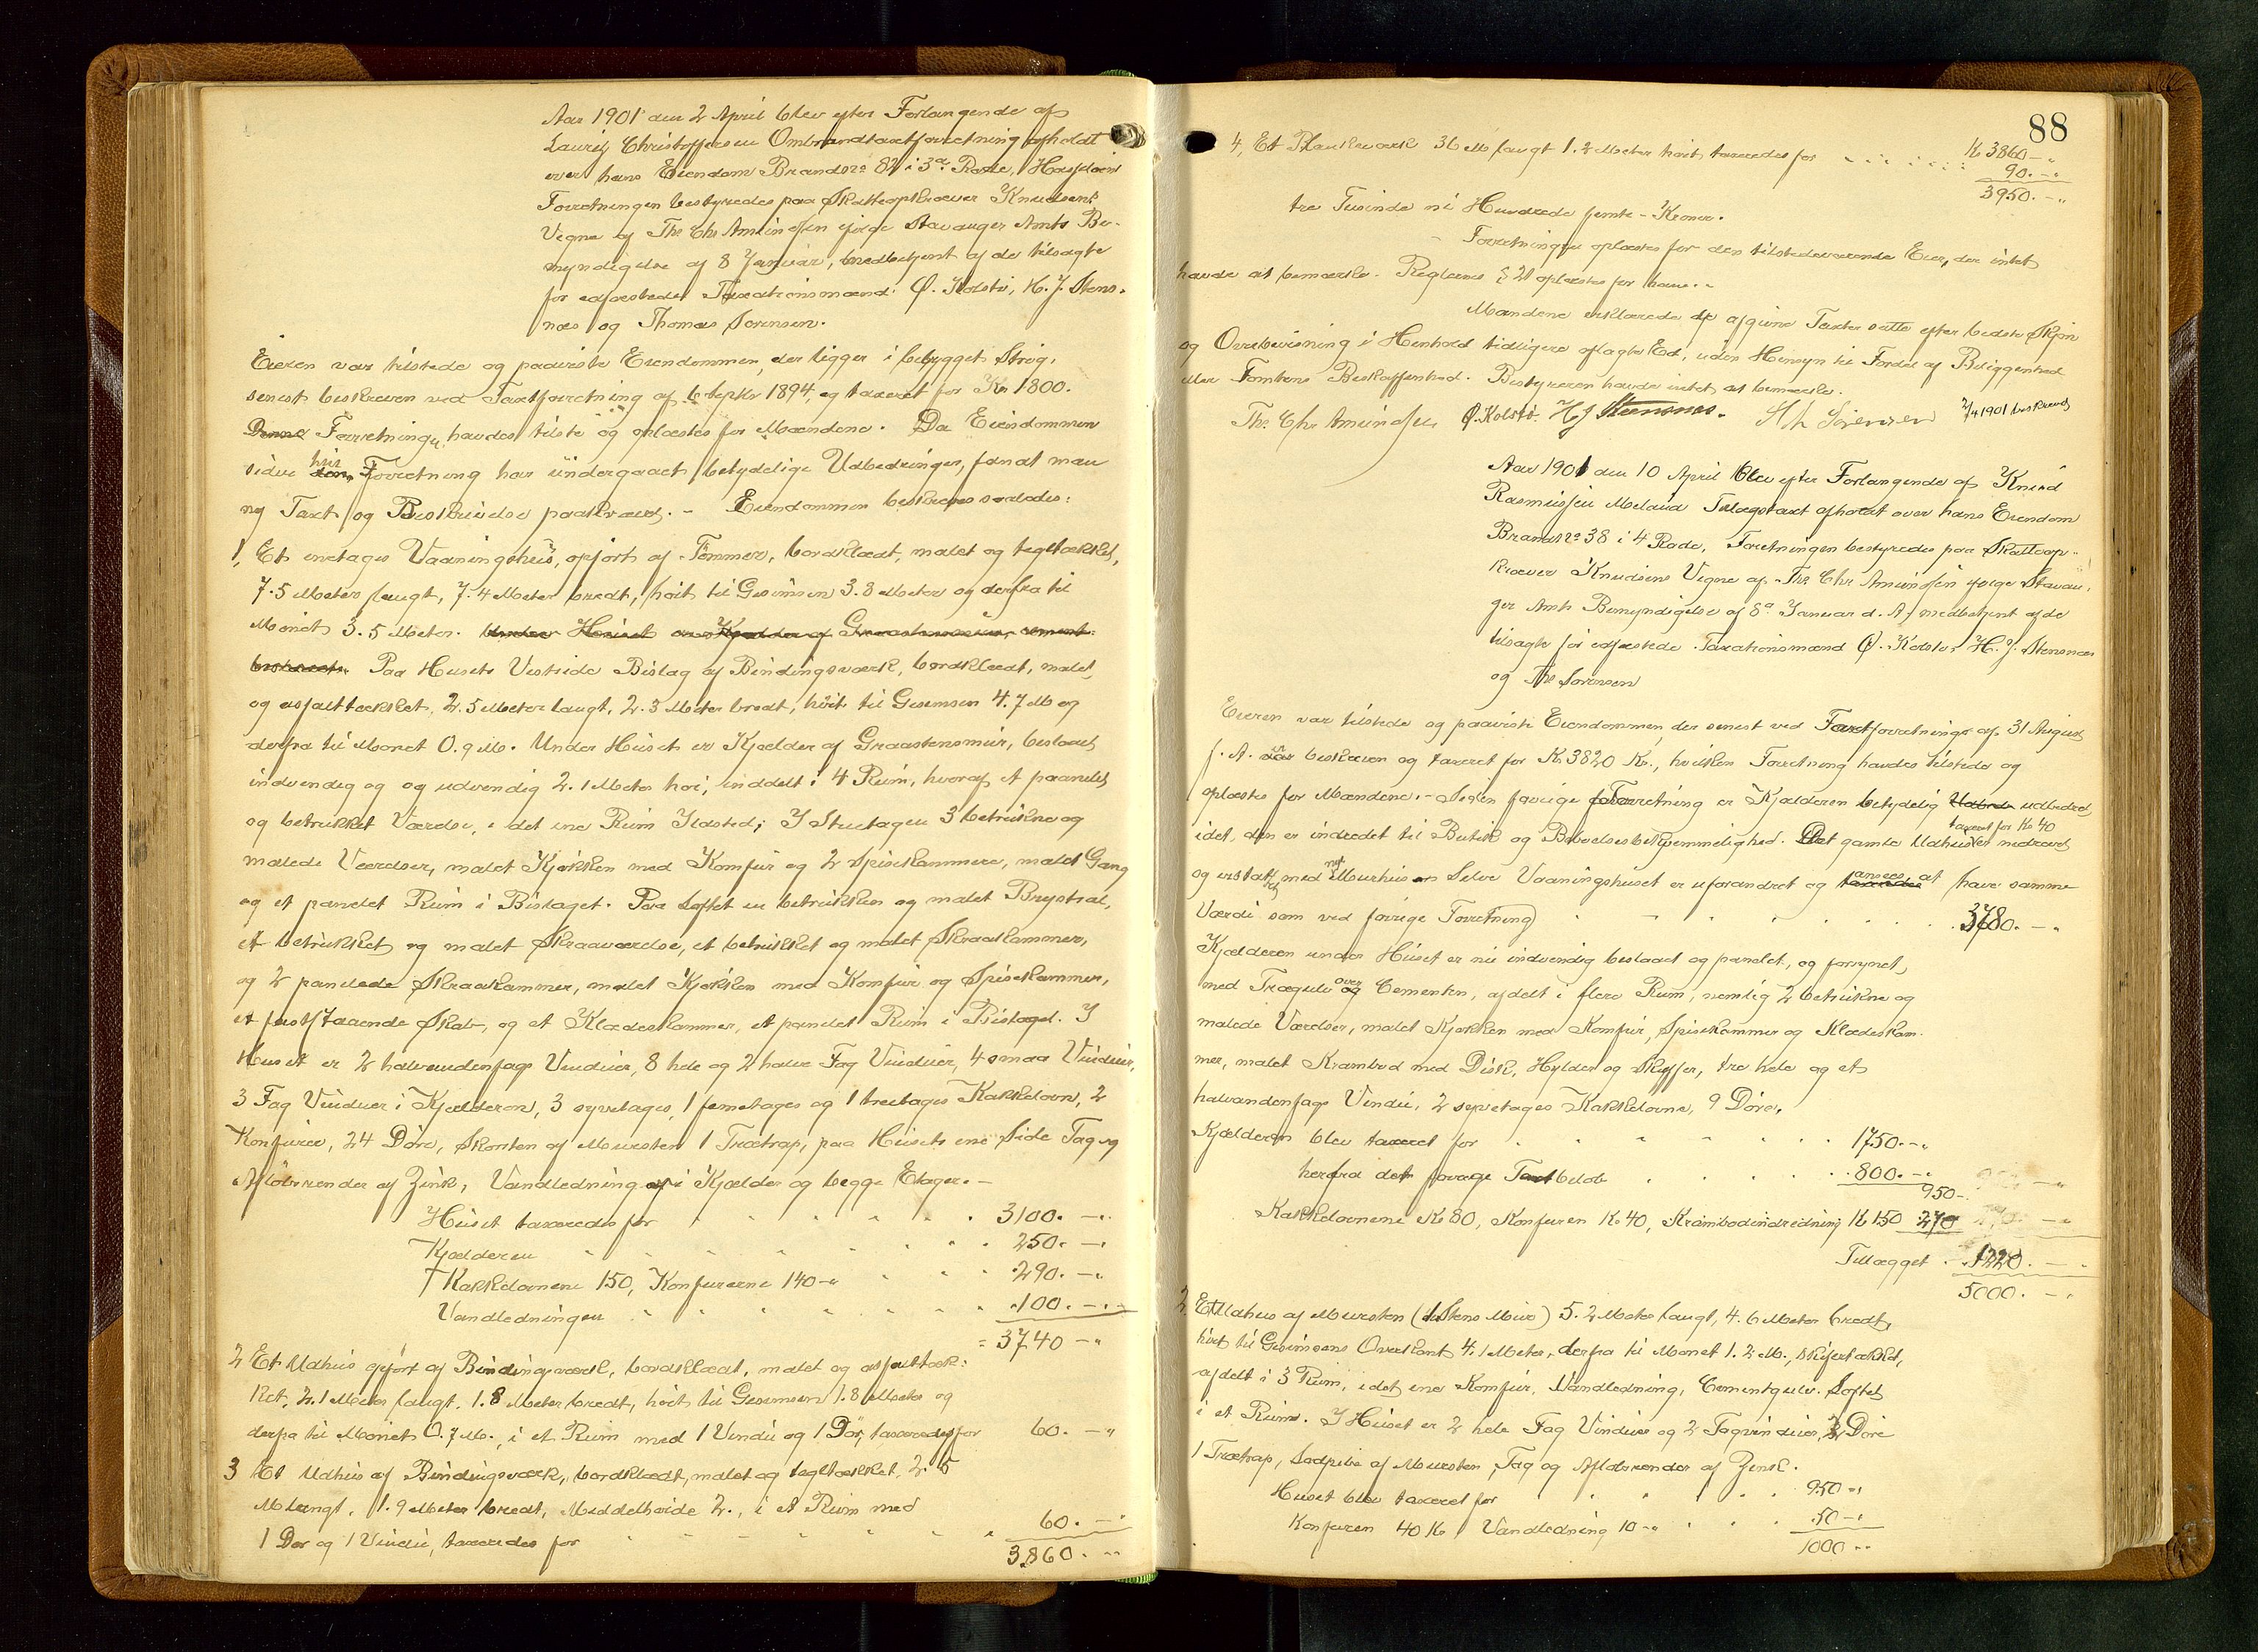 Aar 1901 den 2 April blev efter Forlangende af
Lauritz Christoffersen Ombrandtaxtforretning afholdt
over hans Eiendom Brandno 82 i 3die Rode,
Forretningen bestyredes paa Skatteopkræver Knudsens
Vegne af Th. Chr Amundsen ifølge Stavanger Amts Be-
myndigelse af 8 Januar, medbetjent af de tilsagte
for edfæstede Taxationsmænd: Ø. Kolstø, H. J. Stens-
næs og Thomas Sørensen.
Eieren var tilstede og paaviste Eiendommen, der ligger i bebygget Strøg,
senest beskreven ved Taxtforretning af 6 Septbr 1894, og taxeret for Kr 1800.
Denne Forretning havdes tilste og oplæstes for Mændene. Da Eiendommen
siden hin Forretning har undergaaet betydelige Udbedringer, fandt man
ny Taxt og Beskrivelse paakrævet. - Eiendommen beskreves saaledes:
1, Et enetages Vaaningshus, opført af Tømmer, bordklædt, malet og tegltækket,
7.5 Meter langt, 7.4 Meter bredt, høit til Gesimsen 3.8 Meter og derfra til
Mønet 3.5 Meter. Under Huset er Kjælder af Graastensmur, cement-
beslaaet. Paa Husets Vestside Bislag af Bindingsværk, bordklædt, malet,
og asfalttækket, 2.5 Meter langt, 2.3 Meter bredt, høit til Gesimsen 4.7 M og
derfra til Mønet 0.9 M. Under Huset er Kjælder af Graastensmur, beslaaet
indvendig og og udvendig 2.1 Meter høi, inddelt i 4 Rum, hvoraf et paanelet
og betrukket Værelse, i det ene Rum Ildsted; I Stuetagen 3 betrukne og
malede Værelser, malet Kjøkken med Komfur og 2 Spisekammere, malet Gang
og et panelet Rum i Bislaget. Paa Loftet en betrukken og malet Brystsal,
et betrukket og malet Skraaværelse, et betrukket og malet Skraakammer,
og 2 panelede Skraakammer, malet Kjøkken med Komfur og Spisekammer,
et fastslaaende Skab, og et Klædeskammer, et panelet Rum i Bislaget. I
Huset er 2 halvandenfags Vinduer, 8 hele og 2 halve Fag Vinduer, 4 smaa Vinduer,
3 Fag Vinduer i Kjælderen, 3 syvetages, 1 femetages og 1 treetages Kakkelovn, 2
Komfurer, 24 Døre, Skorsten af Mursten 1 Trætrap, paa Husets ene Side Tag og
Afløbsrender af Zink, Vandledning i Kjælder og begge Etager. -
Huset taxeredes for 3100. -"
Kjælderen 250. -"
Kakkelovnene 150, Komfurerne 140 -" 290. -"
Vandledningen 100. -"
= 3740 -"
2 Et Udhus opført af Bindingsværk, bordklædt, malet og asfalttæk-
ket, 2.1 Meter langt, 1.8 Meter bredt, høit til Gesimsen 1.8 Meter og
derfra til Mønet 0.7 M., i et Rum med 1 Vindu og 1 Dør, taxeredes for 60. -"
3 Et Udhus af Bindingsværk, bordklædt, malet og tegltækket, 2.5
M langt, 1.9 Meter bredt, Middelhøide 2., i et Rum med
1 Dør og 1 Vindu, taxeredes for 60. -"
3,860. -"
88
4, Et Plankeværk 36 M langt 1.2 Meter høit taxeredes for K 3860 -"
90. -"
3950. -"
tre Tusinde ni Hundrede femti - Kroner.
Forretningen oplæstes for den tilstedeværende Eier, der intet
havde at bemærke. Reglernes § 21 oplæstes for ham. -
Mændene erklærede de afgivne Taxter satte efter bedste Skjøn
og Overbevisning i Henhold tidligere aflagte Ed, uden Hensyn til Fordel af Beliggenhed
eller Tomtens Beskaffenhed. Bestyreren havde intet at bemærke.
Th. Chr Amundsen Ø. Kolstø. H J Stensnes. Th Sørensen 2/4 1901 beskrevet
Aar 1901 den 10 April blev efter Forlangende af Knud
Rasmussen Meland Tillægstaxt afholdt over hans Eiendom
Brandno 38 i 4 Rode. Forretningen bestyredes paa Skatteop-
kræver Knudsens Vegne af Th. Chr Amundsen ifølge Stavan-
ger Amts Bemyndigelse af 8de Januar d. A, medbetjent af de
tilsagte før edfæstede Taxationsmænd Ø. Kolstø, H. J. Stensnæs
og Th Sørensen
Eieren var tilstede og paaviste Eiendommen, der senest ved Taxtforretning af 31 August
f. A. er beskreven og taxeret for K. 3820 Kr., hvilken Forretning havdes tilstede og
oplæstes for Mændene. - Siden forrige Forretning er Kjælderen betydelig Udbed udbedret,
idet den er indredet til Butik og Beboelsesbekvemmelighed. Det gamle Udhus taxeret for Kr 40 er nedrevet
og erstattet med nyt Murhus Selve Vaaningshuset er uforandret og taxeredes ansees at have samme
Værdi som ved forrige Forretning 3780. -"
Kjælderen under Huset er nu indvendig beslaaet og panelet, og forsynet
med Trægulv over Cementen, afdelt i flere Rum, nemlig 2 betrukne og
malede Værelser, malet Kjøkken med Komfur, Spisekammer og Klædeskam-
mer, malet Krambod med Disk, Hylder og Skuffer, tre hele og et
halvandenfags Vindu, 2 syvetages Kakkelovne, 9 Døre.
Kjælderen blev taxeret for 1750. -"
herfra det forrige Taxtbeløb 800. -"
950 -
Kakkelovnene Kr 80, Komfuren Kr 40, Krambodindredning K 150 270
Tillægget 1220. -
5000. -"
2. Et Udhus af Mursten (1 Stens Mur) 5.2 Meter langt, 4.6 Meter bredt,
høit til Gesimsens Overkant 4.1 Meter, derfra til Mønet 1.2 M., skifertækket,
afdelt i 3 Rum, i det ene Komfur, Vandledning, Cementgulv. Loftet
i et Rum. I Huset er 2 hele Fag Vinduer og 2 Tagvinduer, Døre
1 Trætrap, Sodpibe af Mursten, Tag og Afløbsrender af Zink.
Huset blev taxeret for 950 -"
Komfuren 40 K Vandledning 10 -" 50 -"
1000 -"